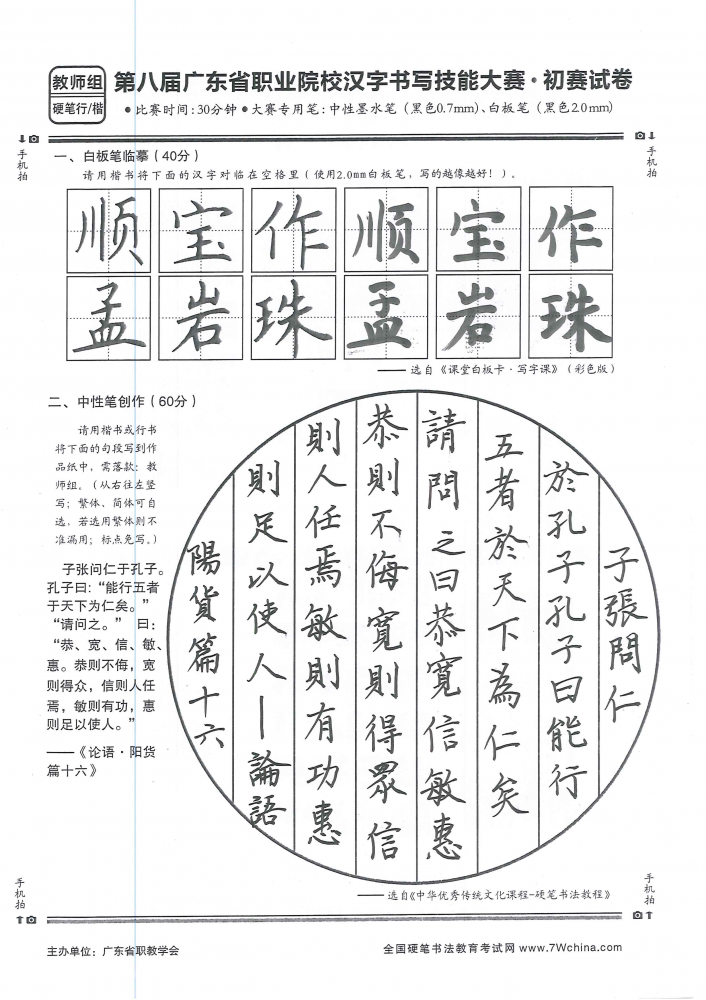 教师组
硬笔行/楷
第八届广东省职业院校汉字书写技能大赛·初赛试卷
●比赛时间:30分钟●大赛专用笔:中性墨水笔(黑色0.7mm)、白板笔(黑色2.0mm)
手机拍
手机拍
一、白板笔临摹(40分)
请用楷书将下面的汉字对临在空格里(使用2.0mm白板笔,写的越像越好!)。
顺宝作顺宝作
孟岩珠孟岩珠
——选自《课堂白板卡·写字课》(彩色版)
二、中性笔创作(60分)
请用楷书或行书
将下面的句段写到作
品纸中,需落款:教
师组。(从右往左竖
写;繁体、简体可自
选,若选用繁体则不
准漏用;标点免写。)
子张问仁于孔子。
孔子曰:“能行五者
于天下为仁矣。”
“请问之。” 曰:
“恭、宽、信、敏、
惠。恭则不侮,宽
则得众,信则人任
焉,敏则有功,惠
则足以使人。”
——《论语·阳货
篇十六》
子張問仁
於孔子孔子曰能行
五者於天下為仁矣
請問之曰恭寬信敏惠
恭則不侮寬則得眾信
則人任焉敏則有功惠
則足以使人—論語
陽貨篇十六
——选自《中华优秀传统文化课程-硬笔书法教程》
手机拍
手机拍
主办单位:广东省职教学会
全国硬笔书法教育考试网 www.7Wchina.com